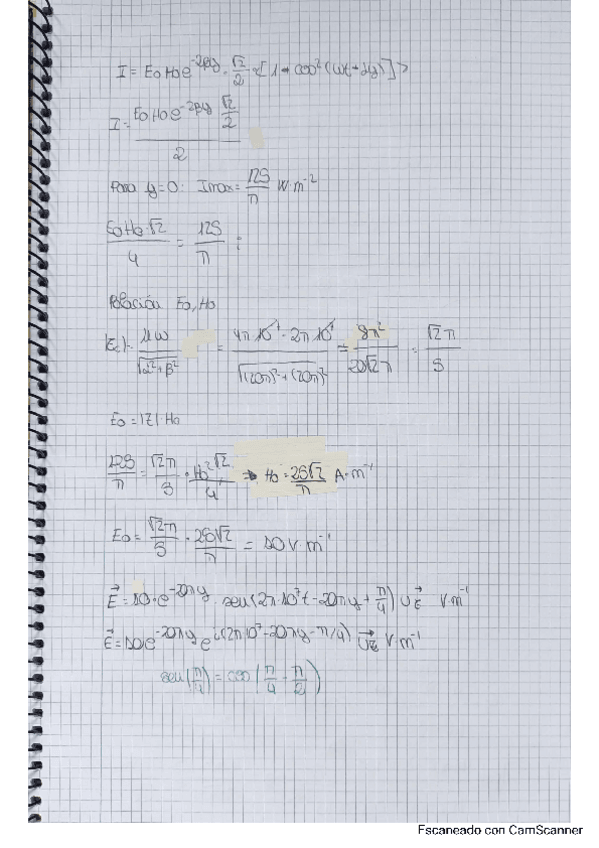 I = E₀H₀e^-2βy · √2/2 · <[1 + cos²(ωt + 2y)]>
I = (E₀H₀e^-2βy √2/2) / 2
Para y=0: Imax = 125/π W·m⁻²
E₀H₀·√2/4 = 125/π ;
Relación E₀, H₀
|Ec| = μω/√(α²+β²) = 4π10⁻⁷ · 2π10⁷/√((20π)²+(20π)²) = 8π²/20√2π = √2π/5
E₀ = |Z|·H₀
125/π = √2π/5 · H₀² √2/4 → H₀ = 25√2/π A·m⁻¹
E₀ = √2π/5 · 25√2/π = 10 V m⁻¹
E⃗ = 10·e^-20πy · sen(2π·10⁷t - 20πy + π/4) u⃗z V·m⁻¹
E⃗ = 10e^-20πy e^i(2π10⁷-20πy-π/4) u⃗z V·m⁻¹
sen(π/4) = cos(π/4 - π/2)
Escaneado con CamScanner